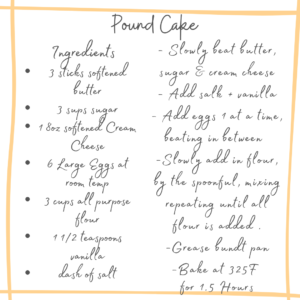 Pound Cake
Ingredients
• 3 sticks softened
butter
• 3 cups sugar
• 1 8oz softened Cream
Cheese
• 6 Large Eggs at
room temp
• 3 cups all purpose
flour
• 1 1/2 teaspoons
vanilla
• dash of salt
- Slowly beat butter,
sugar & cream cheese
- Add salt + vanilla
- Add eggs 1 at a time,
beating in between
-Slowly add in flour,
by the spoonful, mixing
repeating until all
flour is added .
-Grease bundt pan
-Bake at 325F
for 1.5 Hours